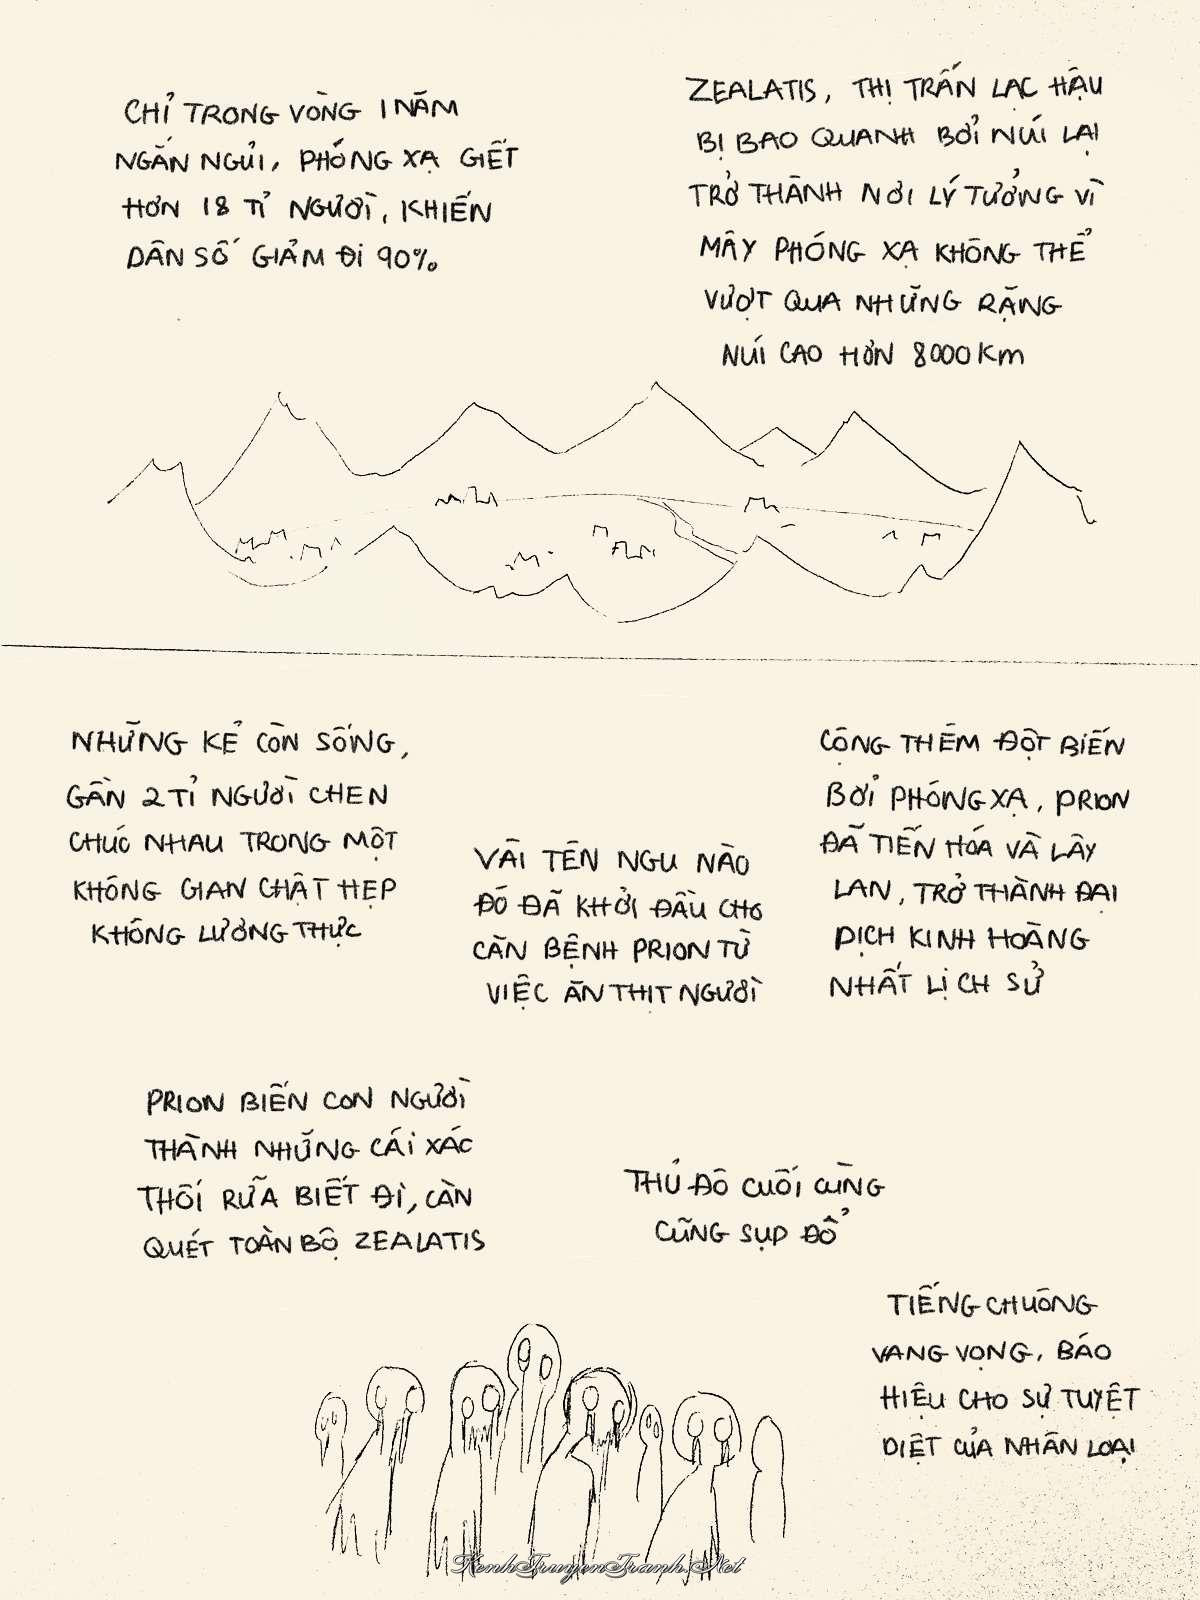 CHỈ TRONG VÒNG 1 NĂM
NGẮN NGỦI, PHÓNG XẠ GIẾT
HƠN 18 TỈ NGƯỜI, KHIẾN
DÂN SỐ GIẢM ĐI 90%
ZEALATIS, THỊ TRẤN LẠC HẬU
BỊ BAO QUANH BỞI NÚI LẠI
TRỞ THÀNH NƠI LÝ TƯỞNG VÌ
MÂY PHÓNG XẠ KHÔNG THỂ
VƯỢT QUA NHỮNG RẶNG
NÚI CAO HƠN 8000Km
NHỮNG KẺ CÒN SỐNG,
GẦN 2 TỈ NGƯỜI CHEN
CHÚC NHAU TRONG MỘT
KHÔNG GIAN CHẬT HẸP
KHÔNG LƯƠNG THỰC
VÀI TÊN NGU NÀO
ĐÓ ĐÃ KHỞI ĐẦU CHO
CĂN BỆNH PRION TỪ
VIỆC ĂN THỊT NGƯỜI
CỘNG THÊM ĐỘT BIẾN
BỞI PHÓNG XẠ, PRION
ĐÃ TIẾN HÓA VÀ LÂY
LAN, TRỞ THÀNH ĐẠI
DỊCH KINH HOÀNG
NHẤT LỊCH SỬ
PRION BIẾN CON NGƯỜI
THÀNH NHỮNG CÁI XÁC
THỐI RỮA BIẾT ĐI, CÀN
QUÉT TOÀN BỘ ZEALATIS
THỦ ĐÔ CUỐI CÙNG
CŨNG SỤP ĐỔ
TIẾNG CHUÔNG
VANG VỌNG, BÁO
HIỆU CHO SỰ TUYỆT
DIỆT CỦA NHÂN LOẠI
KenhTruyenTranh.Net